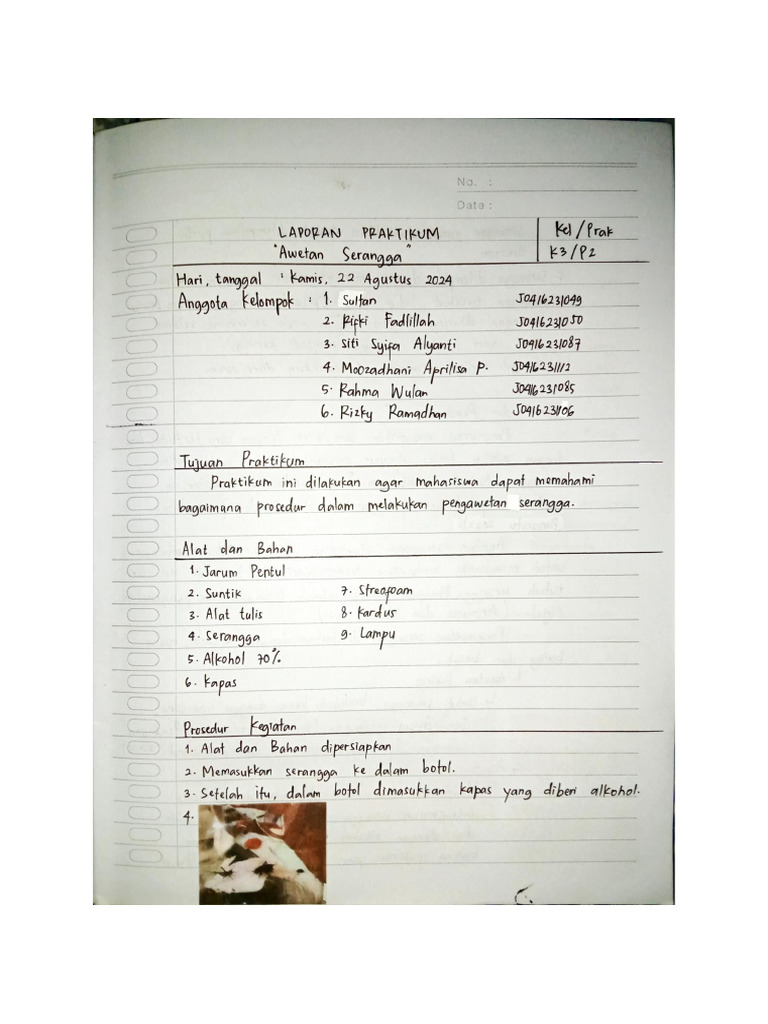 No. :
Date :
LAPORAN PRAKTIKUM
"Awetan Serangga"
Kel/Prak
K3/P2
Hari, tanggal : Kamis, 22 Agustus 2024
Anggota Kelompok : 1. Sultan J0416231049
2. Rifki Fadlillah J0416231050
3. Siti Syifa Alyanti J0416231087
4. Moozadhani Aprilisa P. J0416231112
5. Rahma Wulan J0416231085
6. Rizky Ramadhan J0416231106
Tujuan Praktikum
Praktikum ini dilakukan agar mahasiswa dapat memahami
bagaimana prosedur dalam melakukan pengawetan serangga.
Alat dan Bahan
1. Jarum Pentul
2. Suntik
3. Alat tulis
4. Serangga
5. Alkohol 70%
6. Kapas
7. Streafoam
8. Kardus
9. Lampu
Prosedur Kegiatan
1. Alat dan Bahan dipersiapkan
2. Memasukkan serangga ke dalam botol.
3. Setelah itu, dalam botol dimasukkan kapas yang diberi alkohol.
4.